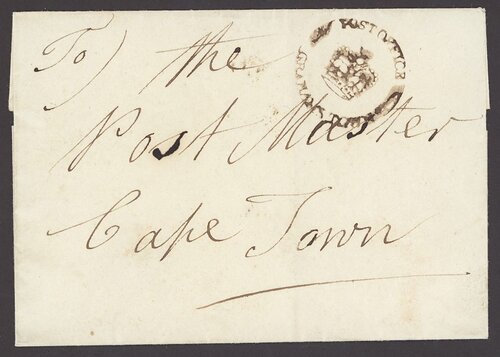 To) the
Post Master
Cape Town
POST OFFICE